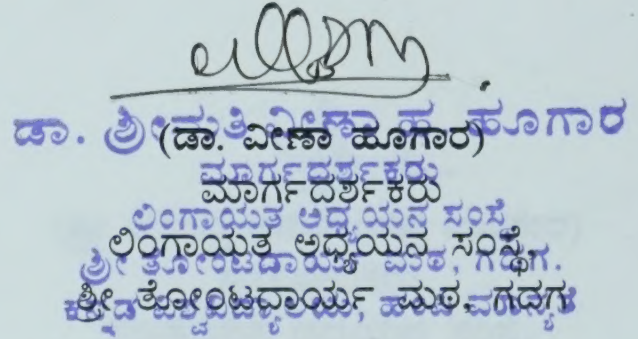 ಡಾ. ಶ್ರೀಮತಿ ವೀಣಾ ಹ ಹೂಗಾರ
(ಡಾ. ವೀಣಾ ಹೂಗಾರ)
ಮಾರ್ಗದರ್ಶಕರು
ಮಾರ್ಗದರ್ಶಕರು
ಲಿಂಗಾಯತ ಅಧ್ಯಯನ ಸಂಸ್ಥೆ
ಲಿಂಗಾಯತ ಅಧ್ಯಯನ ಸಂಸ್ಥೆ,
ಶ್ರೀ ತೋಂಟದಾರ್ಯ ಮಠ, ಗದಗ.
ಶ್ರೀ ತೋಂಟದಾರ್ಯ ಮಠ, ಗದಗ
ಕನ್ನಡ ವಿಶ್ವವಿದ್ಯಾಲಯ, ಹಂಪಿ